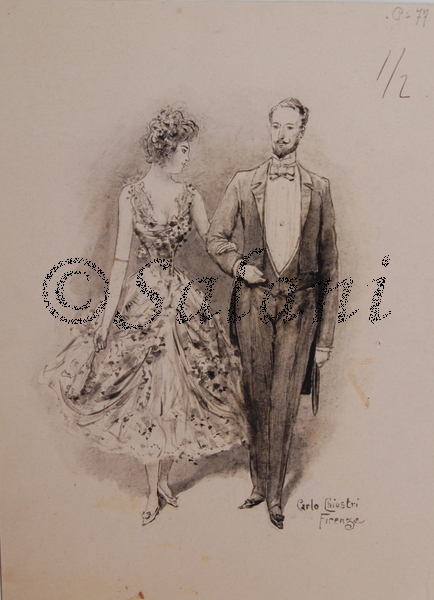 P = 77
1/2
©Safoni
Carlo Chiostri
Firenze